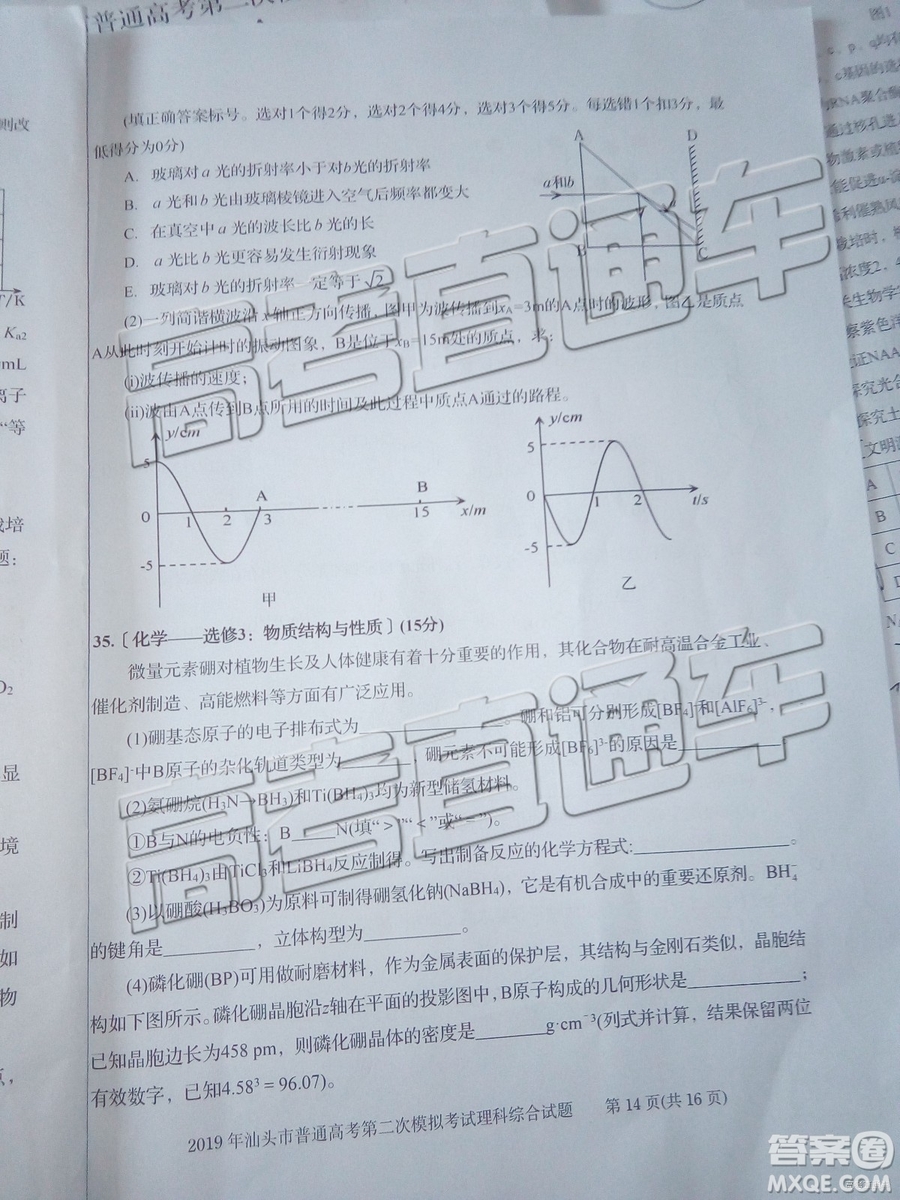 普通高考第二次
(填正确答案标号。选对1个得2分，选对2个得4分，选对3个得5分。每选错1个扣3分，最
低得分为0分)
A. 玻璃对a光的折射率小于对b光的折射率
B. a光和b光由玻璃棱镜进入空气后频率都变大
C. 在真空中a光的波长比b光的长
D. a光比b光更容易发生衍射现象
E. 玻璃对b光的折射率一定等于√2
A
D
a和b
B
C
(2)一列简谐横波沿 轴正方向传播，图甲为波传播到xA=3m的A点时的波形，图乙是质点
A从此时刻开始计时的振动图象，B是位于xB=15m处的质点，求：
(i)波传播的速度；
(ii)波由A点传到B点所用的时间及此过程中质点A通过的路程。
y/cm
5
0
-5
1
2
3
A
B
15
x/m
甲
y/cm
5
0
-5
1
2
t/s
乙
35.〔化学——选修3：物质结构与性质〕(15分)
微量元素硼对植物生长及人体健康有着十分重要的作用，其化合物在耐高温合金工业、
催化剂制造、高能燃料等方面有广泛应用。
(1)硼基态原子的电子排布式为______。硼和铝可分别形成[BF₄]⁻和[AlF₆]³⁻，
[BF₄]⁻中B原子的杂化轨道类型为______，硼元素不可能形成[BF₆]³⁻的原因是______
(2)氨硼烷(H₃N→BH₃)和Ti(BH₄)₃均为新型储氢材料。
①B与N的电负性：B____N(填“＞”“＜”或“＝”)。
②Ti(BH₄)₃由TiCl₃和LiBH₄反应制得。写出制备反应的化学方程式:______。
(3)以硼酸(H₃BO₃)为原料可制得硼氢化钠(NaBH₄)，它是有机合成中的重要还原剂。BH₄⁻
的键角是______，立体构型为______。
(4)磷化硼(BP)可用做耐磨材料，作为金属表面的保护层，其结构与金刚石类似，晶胞结
构如下图所示。磷化硼晶胞沿z轴在平面的投影图中，B原子构成的几何形状是______；
已知晶胞边长为458 pm，则磷化硼晶体的密度是______g·cm⁻³(列式并计算，结果保留两位
有效数字，已知4.58³＝96.07)。
2019年汕头市普通高考第二次模拟考试理科综合试题 第14页(共16页)
高考直通车
高考直通车
答案圈
MXQE.COM
则改
T/K
Ka2
mL
离子
“等
题：
O₂
显
境
制
如
物
图1